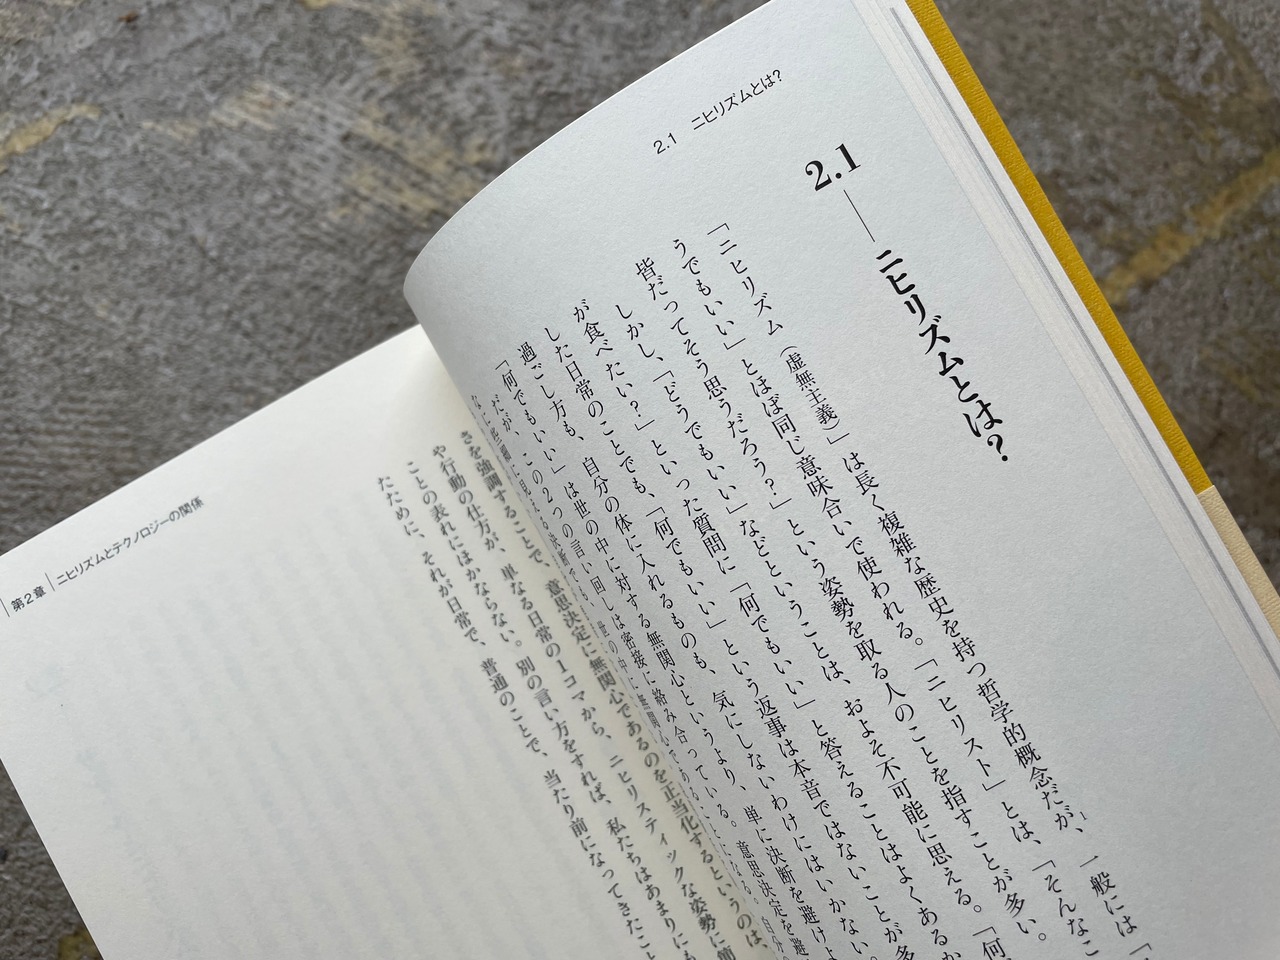 2.1　ニヒリズムとは?
2.1——ニヒリズムとは?
「ニヒリズム（虚無主義）」は長く複雑な歴史を持つ哲学的概念だが、1 一般には「
うでもいい」とほぼ同じ意味合いで使われる。「ニヒリスト」とは、「そんなこ
皆だってそう思うだろう?」という姿勢を取る人のことを指すことが多い。
しかし、「どうでもいい」などということは、およそ不可能に思える。「何
が食べたい?」といった質問に「何でもいい」と答えることはよくあるか
した日常のことでも、「何でもいい」という返事は本音ではないことが多
過ごし方も、自分の体に入れるものも、気にしないわけにはいかない。
「何でもいい」は世の中に対する無関心というより、単に決断を避けよ
だが、この2つの言い回しは密接に絡み合っている。意思決定を避
第2章 ニヒリズムとテクノロジーの関係
さを強調することで、意思決定に無関心であるのを正当化するというのは、
や行動の仕方が、単なる日常の1コマから、ニヒリスティックな姿勢に
ことの表れにほかならない。別の言い方をすれば、私たちはあまりにも
たために、それが日常で、普通のことで、当たり前になってきたこと